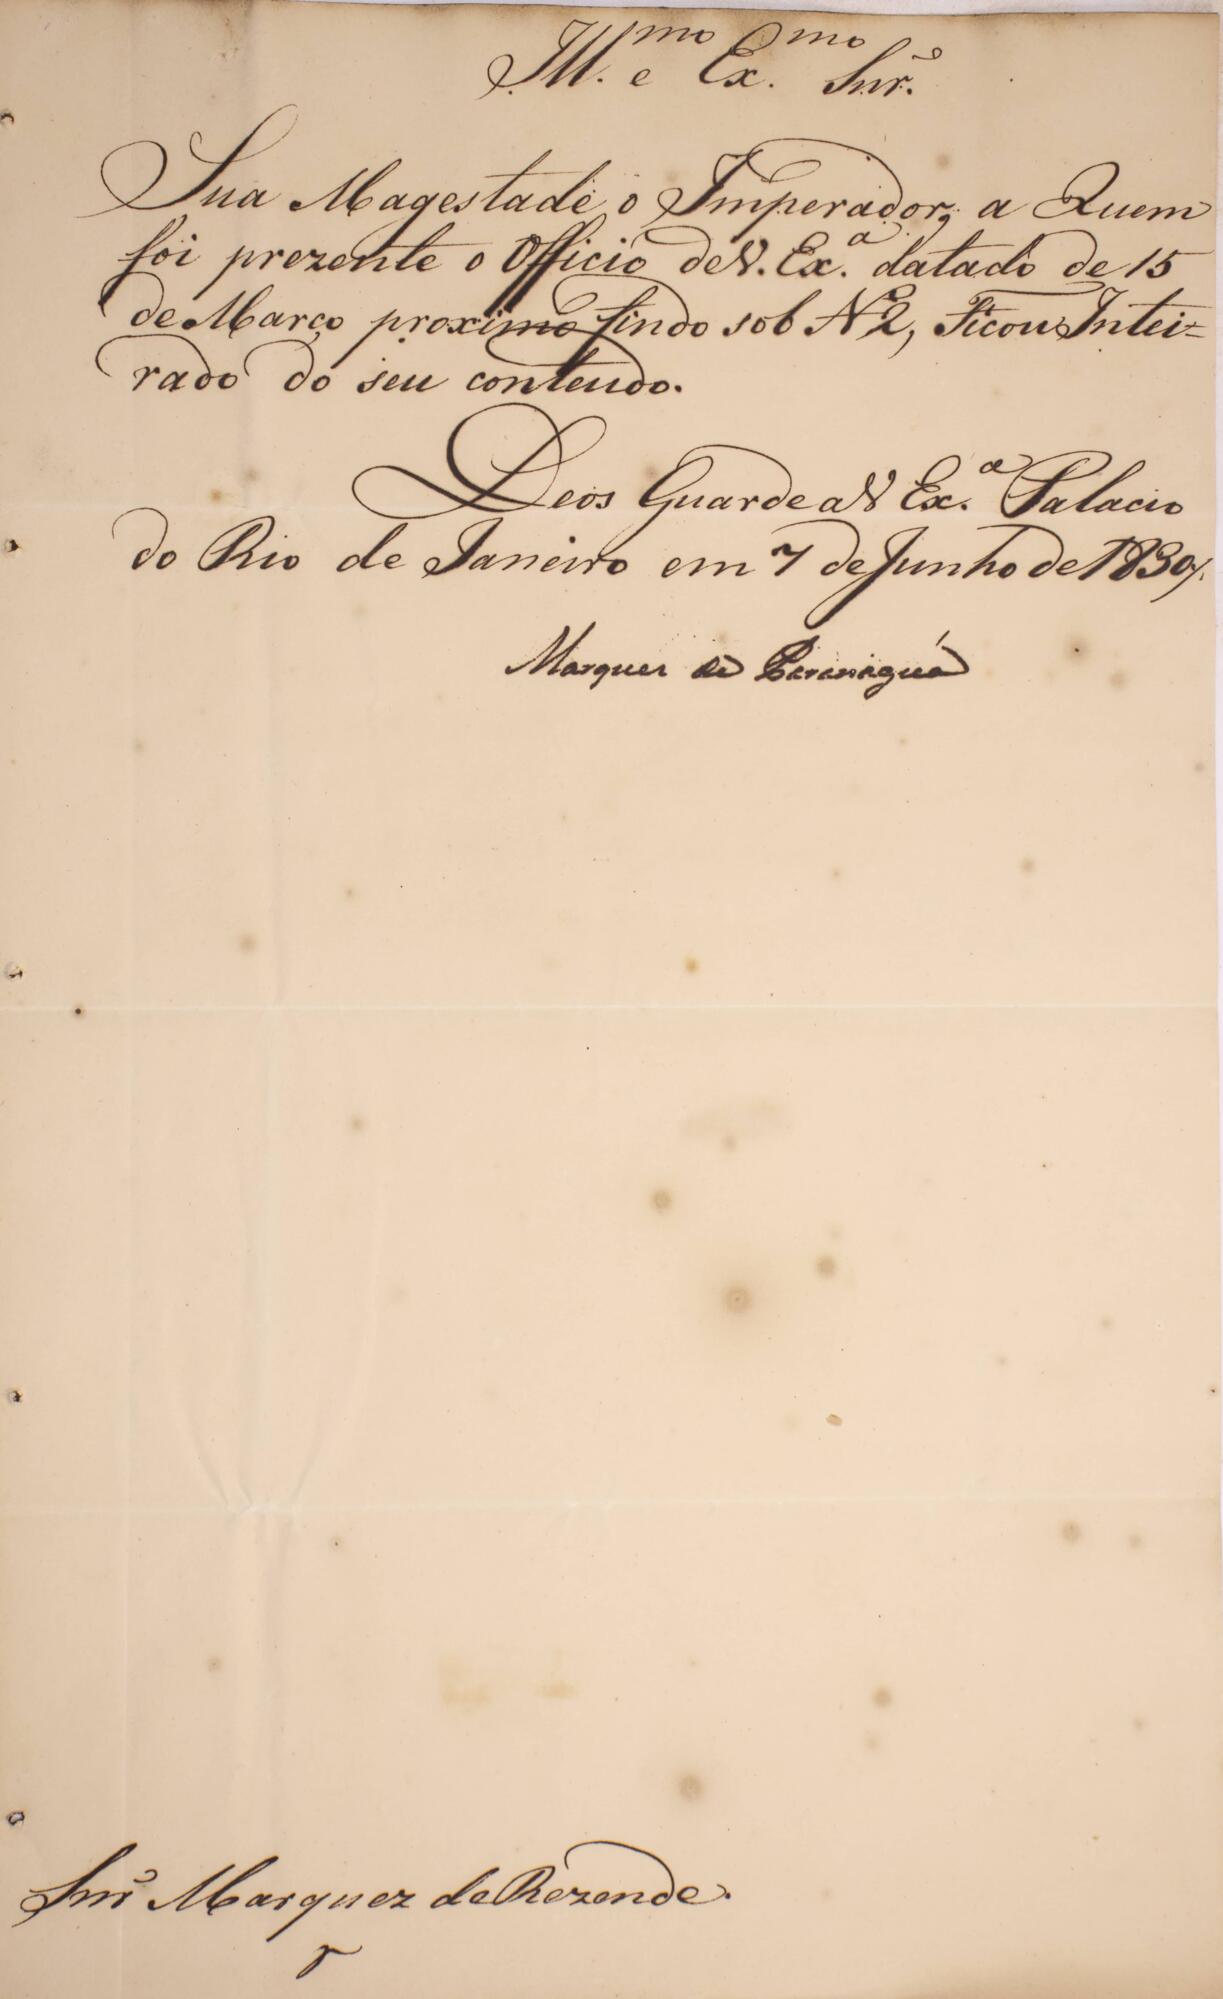 Ill.mo e Ex.mo Snr.
Sua Magestade o Imperador, a Quem
foi prezente o Officio de V. Ex.a datado de 15
de Março proximo findo sob Nº 2, Ficou Intei=
rado do seu conteudo.
Deos Guarde a V Ex.a Palacio
do Rio de Janeiro em 7 de Junho de 1830/.
Marquez de Paranaguá
Snr Marquez de Rezende.